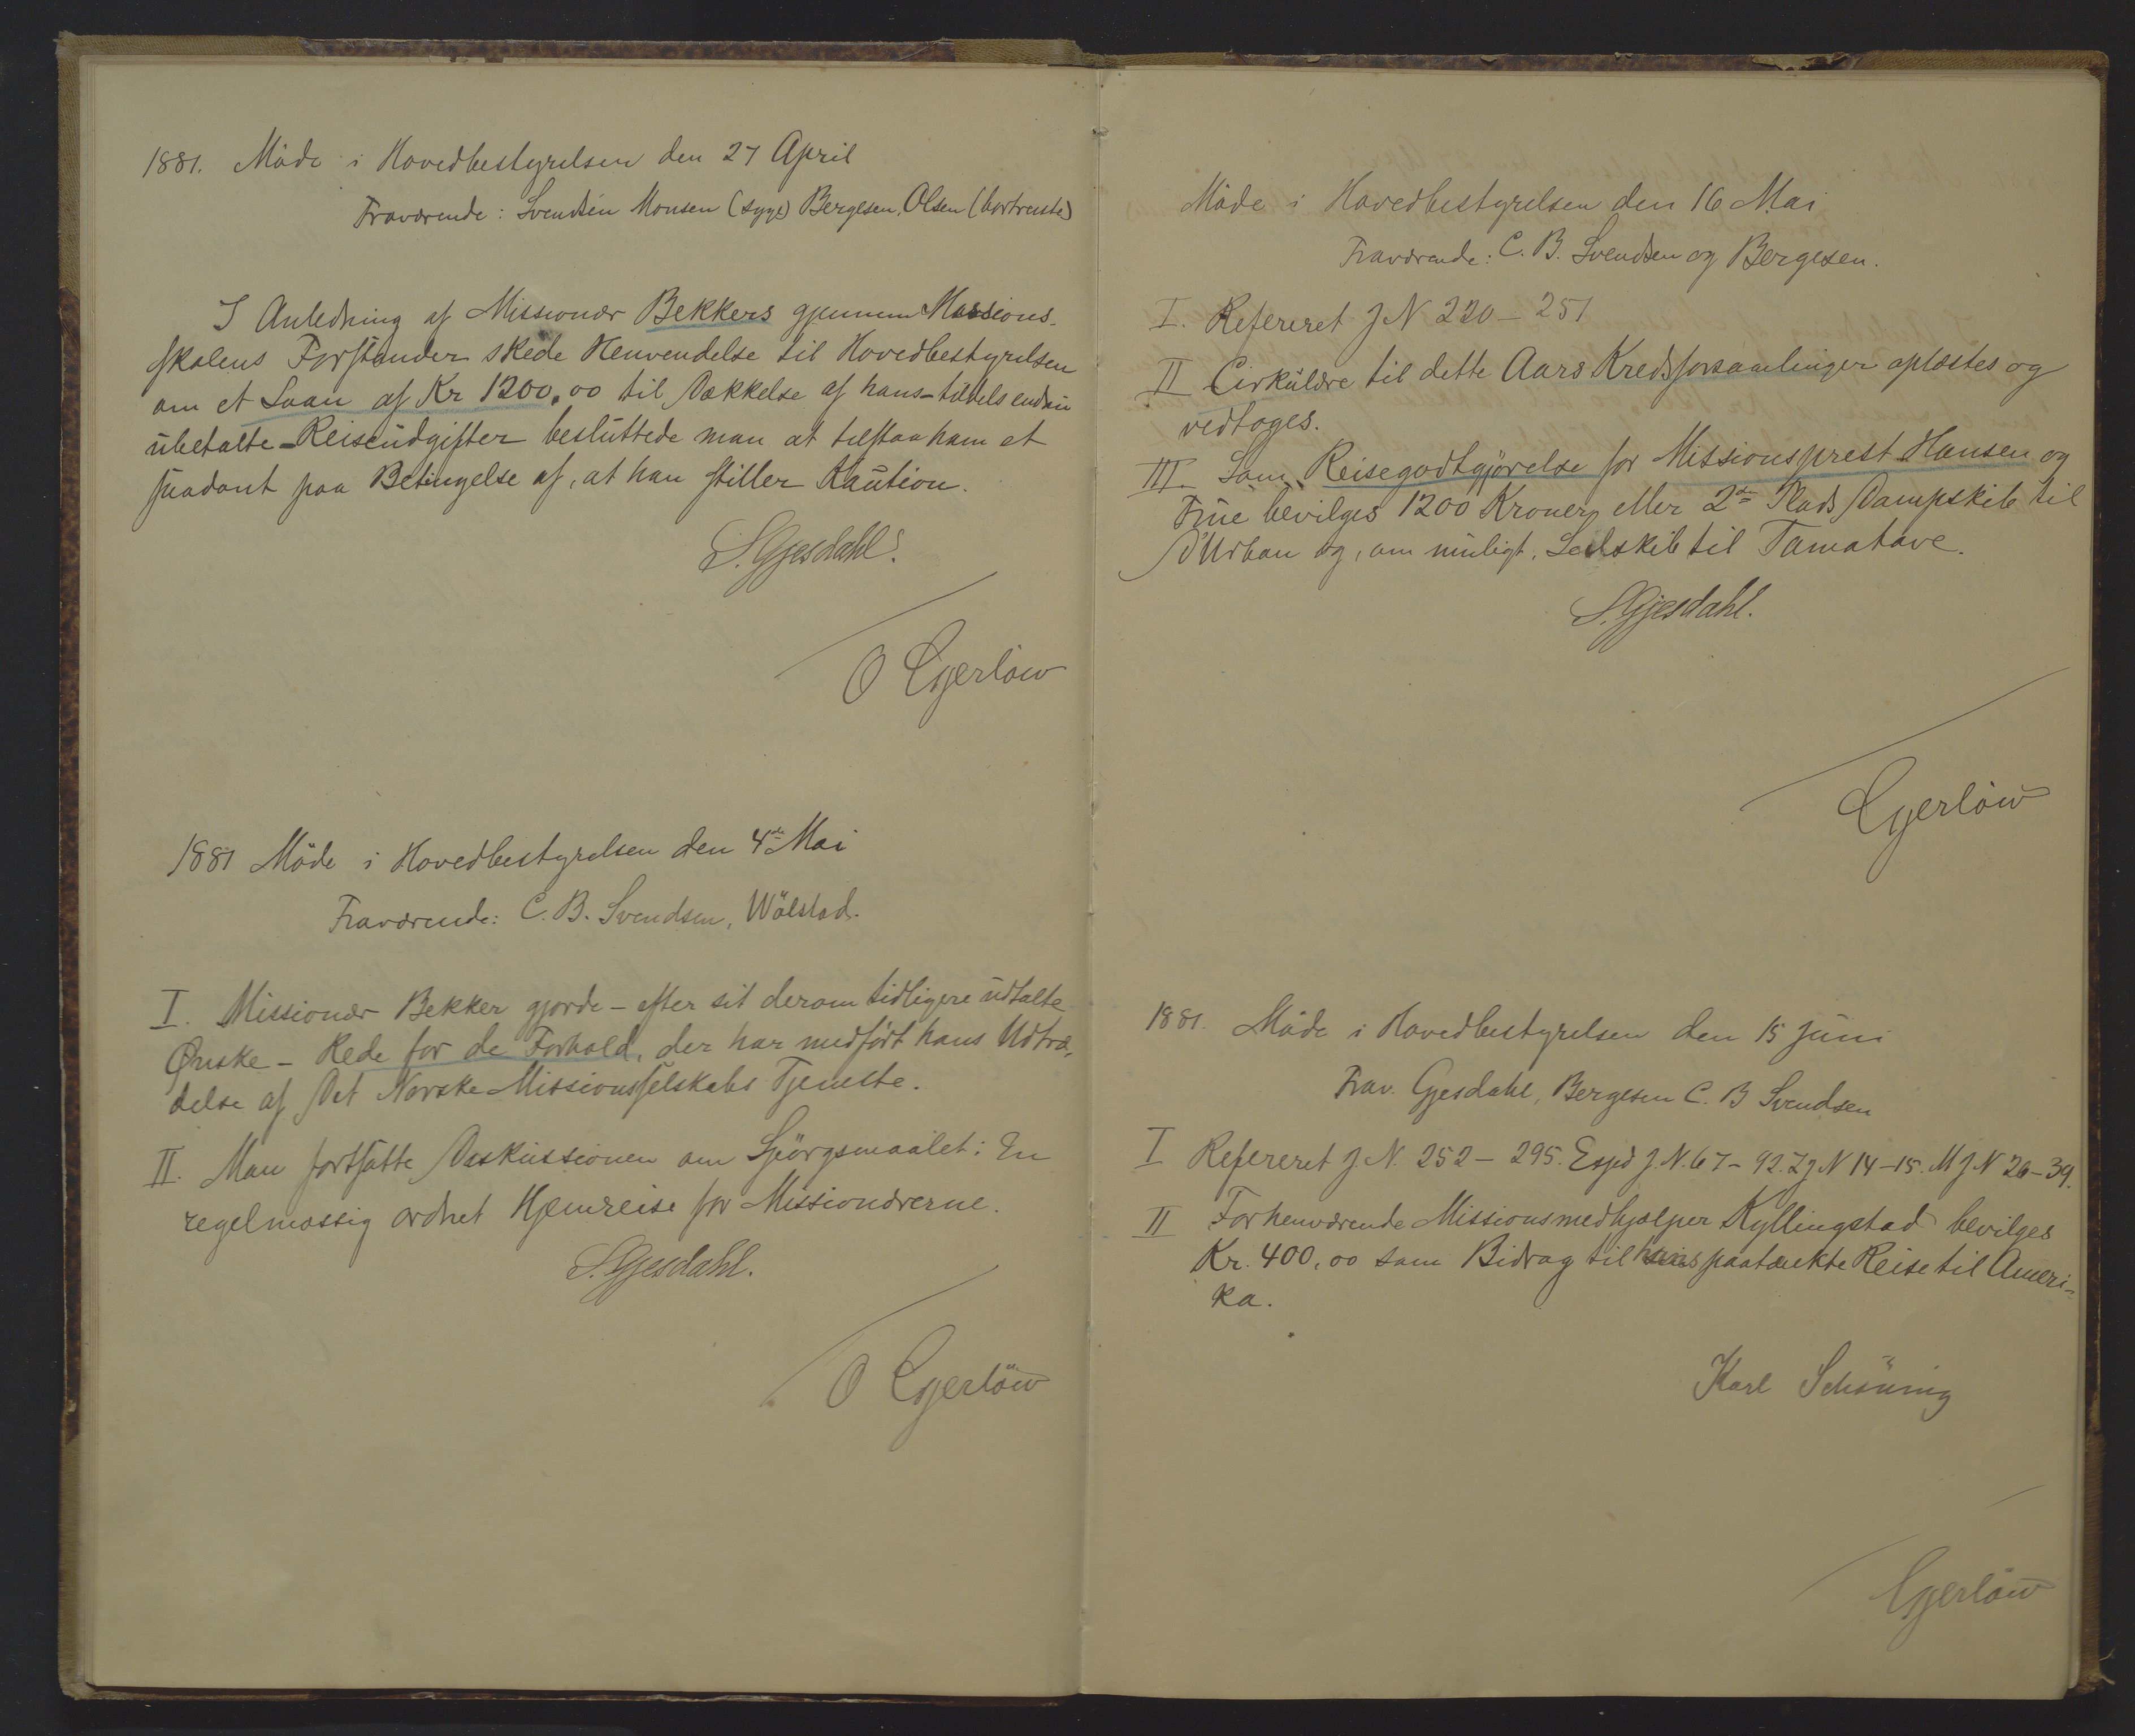 1881. Møde i Hovedbestyrelsen den 27 April
Fraværende: Svendsen Monsen (syge) Bergesen, Olsen (bortreiste)
I Anledning af Missionær Bekkers gjennem Missions-
skolens Forstander skede Henvendelse til Hovedbestyrelsen
om et Laan af Kr 1200,00 til Dækkelse af hans – tildels endnu
ubetalte – Reiseudgifter besluttede man at tilstaa ham et
saadant paa Betingelse af, at han stiller Kaution.
S. Gjesdahl.
O Gjerløw
1881 Møde i Hovedbestyrelsen den 4de Mai
Fraværende: C. B. Svendsen, Wölstad.
I. Missionær Bekker gjorde – efter sit derom tidligere udtalte
Ønske – Rede for de Forhold, der har medført hans Udtræ-
delse af Det Norske Missionsselskabs Tjeneste.
II. Man fortsatte Diskussionen om Spørgsmaalet: En
regelmæssig ordnet Hjemreise for Missionærerne.
S. Gjesdahl.
O Gjerløw
Møde i Hovedbestyrelsen den 16 Mai
Fraværende: C. B. Svendsen og Bergesen.
I. Refereret J N 220 – 251
II Cirkulære til dette Aars Kredsforsamlinger oplæstes og
vedtoges.
III. Som Reisegodtgjørelse for Missionsprest Hansen og
Frue bevilges 1200 Kroner, eller 2den Plads Dampskib til
D'Urban og, om muligt, Seilskib til Tamatave.
S. Gjesdahl.
Gjerløw
1881. Møde i Hovedbestyrelsen den 15 Juni
Frav. Gjesdahl, Bergesen C. B Svendsen
I Refereret J. N. 252 – 295. Exped J. N. 67 – 92. Z J N 14 – 15. M J N 26 – 39.
II Forhenværende Missionsmedhjælper Kyllingstad bevilges
Kr. 400,00 som Bidrag til hans paatænkte Reise til Ameri-
ka.
Karl Schöning
Gjerløw